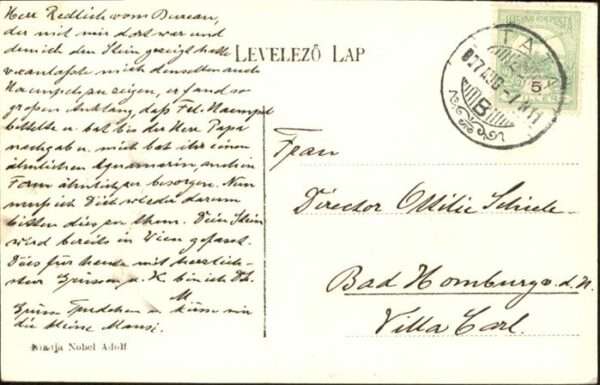 Herr Redlich vom Bureau,
der mit mir dort war und
dem ich den Stein gezeigt hatte
veranlasste mich denselben auch
zu zeigen, er fand so
großen Anklang, daß Frl.
bettelte u. bat bis der Herr Papa
nachgab u. mich bat ihr einen
ähnlichen Aquamarin, auch in
Form ähnlich zu besorgen. Nun
muß ich Dich wieder darum
bitten dies zu thun. Dein Stein
wird bereits in Wien gefasst.
Dies für heute mit herzlich-
sten Grüssen u. K. bin ich Dh.
M
Grüsse Friedchen u. küsse mir
die kleine Mausi.
LEVELEZŐ LAP
TATA
B
5
Frau
Director Ottilie Schiele
Bad Homburg v. d. H.
Villa Carl.
Kiadja Nobel Adolf